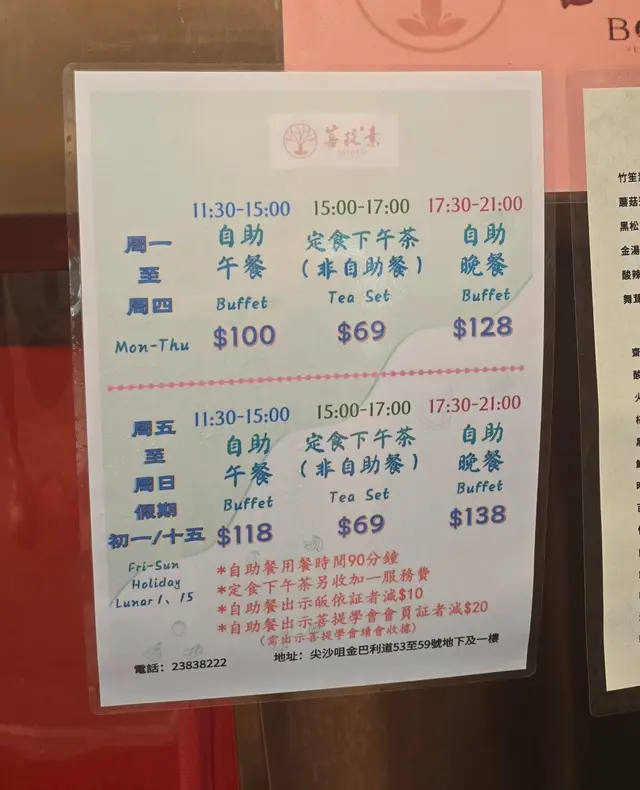 菩提素
11:30-15:00 15:00-17:00 17:30-21:00
周一 自助 定食下午茶 自助
至 午餐 (非自助餐) 晚餐
周四 Buffet Tea Set Buffet
Mon-Thu $100 $69 $128
11:30-15:00 15:00-17:00 17:30-21:00
周五 自助 定食下午茶 自助
至 午餐 (非自助餐) 晚餐
周日
假期 Buffet Tea Set Buffet
初一/十五 $118 $69 $138
Fri-Sun
Holiday
Lunar 1、15
*自助餐用餐時間90分鐘
*定食下午茶另收加一服務費
*自助餐出示皈依証者減$10
*自助餐出示菩提學會會員証者減$20
(需出示菩提學會續會收據)
電話：23838222
地址：尖沙咀金巴利道53至59號地下及一樓
竹笙
蘑菇
黑松
金湯
酸辣
舞茸
齋